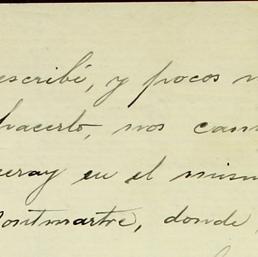 escribí, y pocos
hacerlo, nos cam
eray en el mism
Montmartre, donde